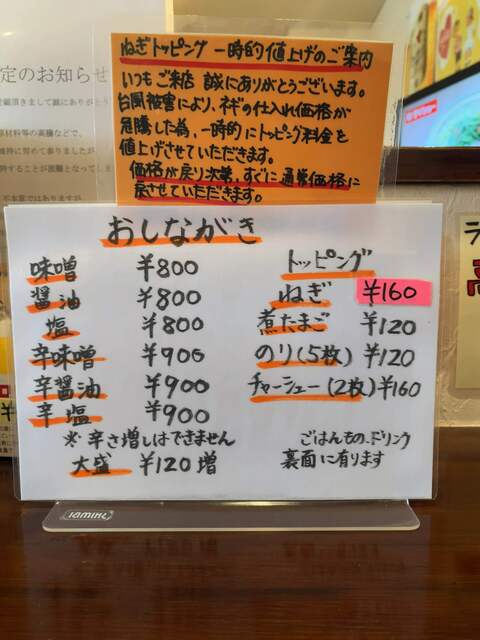 ねぎトッピング 一時的値上げのご案内
いつもご来店 誠にありがとうございます。
台風被害により、ネギの仕入れ価格が
急騰した為、一時的にトッピング料金を
値上げさせていただきます。
価格が戻り次第、すぐに通常価格に
戻させていただきます。
定のお知らせ
おしながき
味噌 ¥800
醤油 ¥800
塩 ¥800
辛味噌 ¥900
辛醤油 ¥900
辛塩 ¥900
※辛さ増しはできません
大盛 ¥120増
トッピング
ねぎ ¥160
煮たまご ¥120
のり(5枚) ¥120
チャーシュー(2枚) ¥160
ごはんもの、ドリンク
裏面に有ります